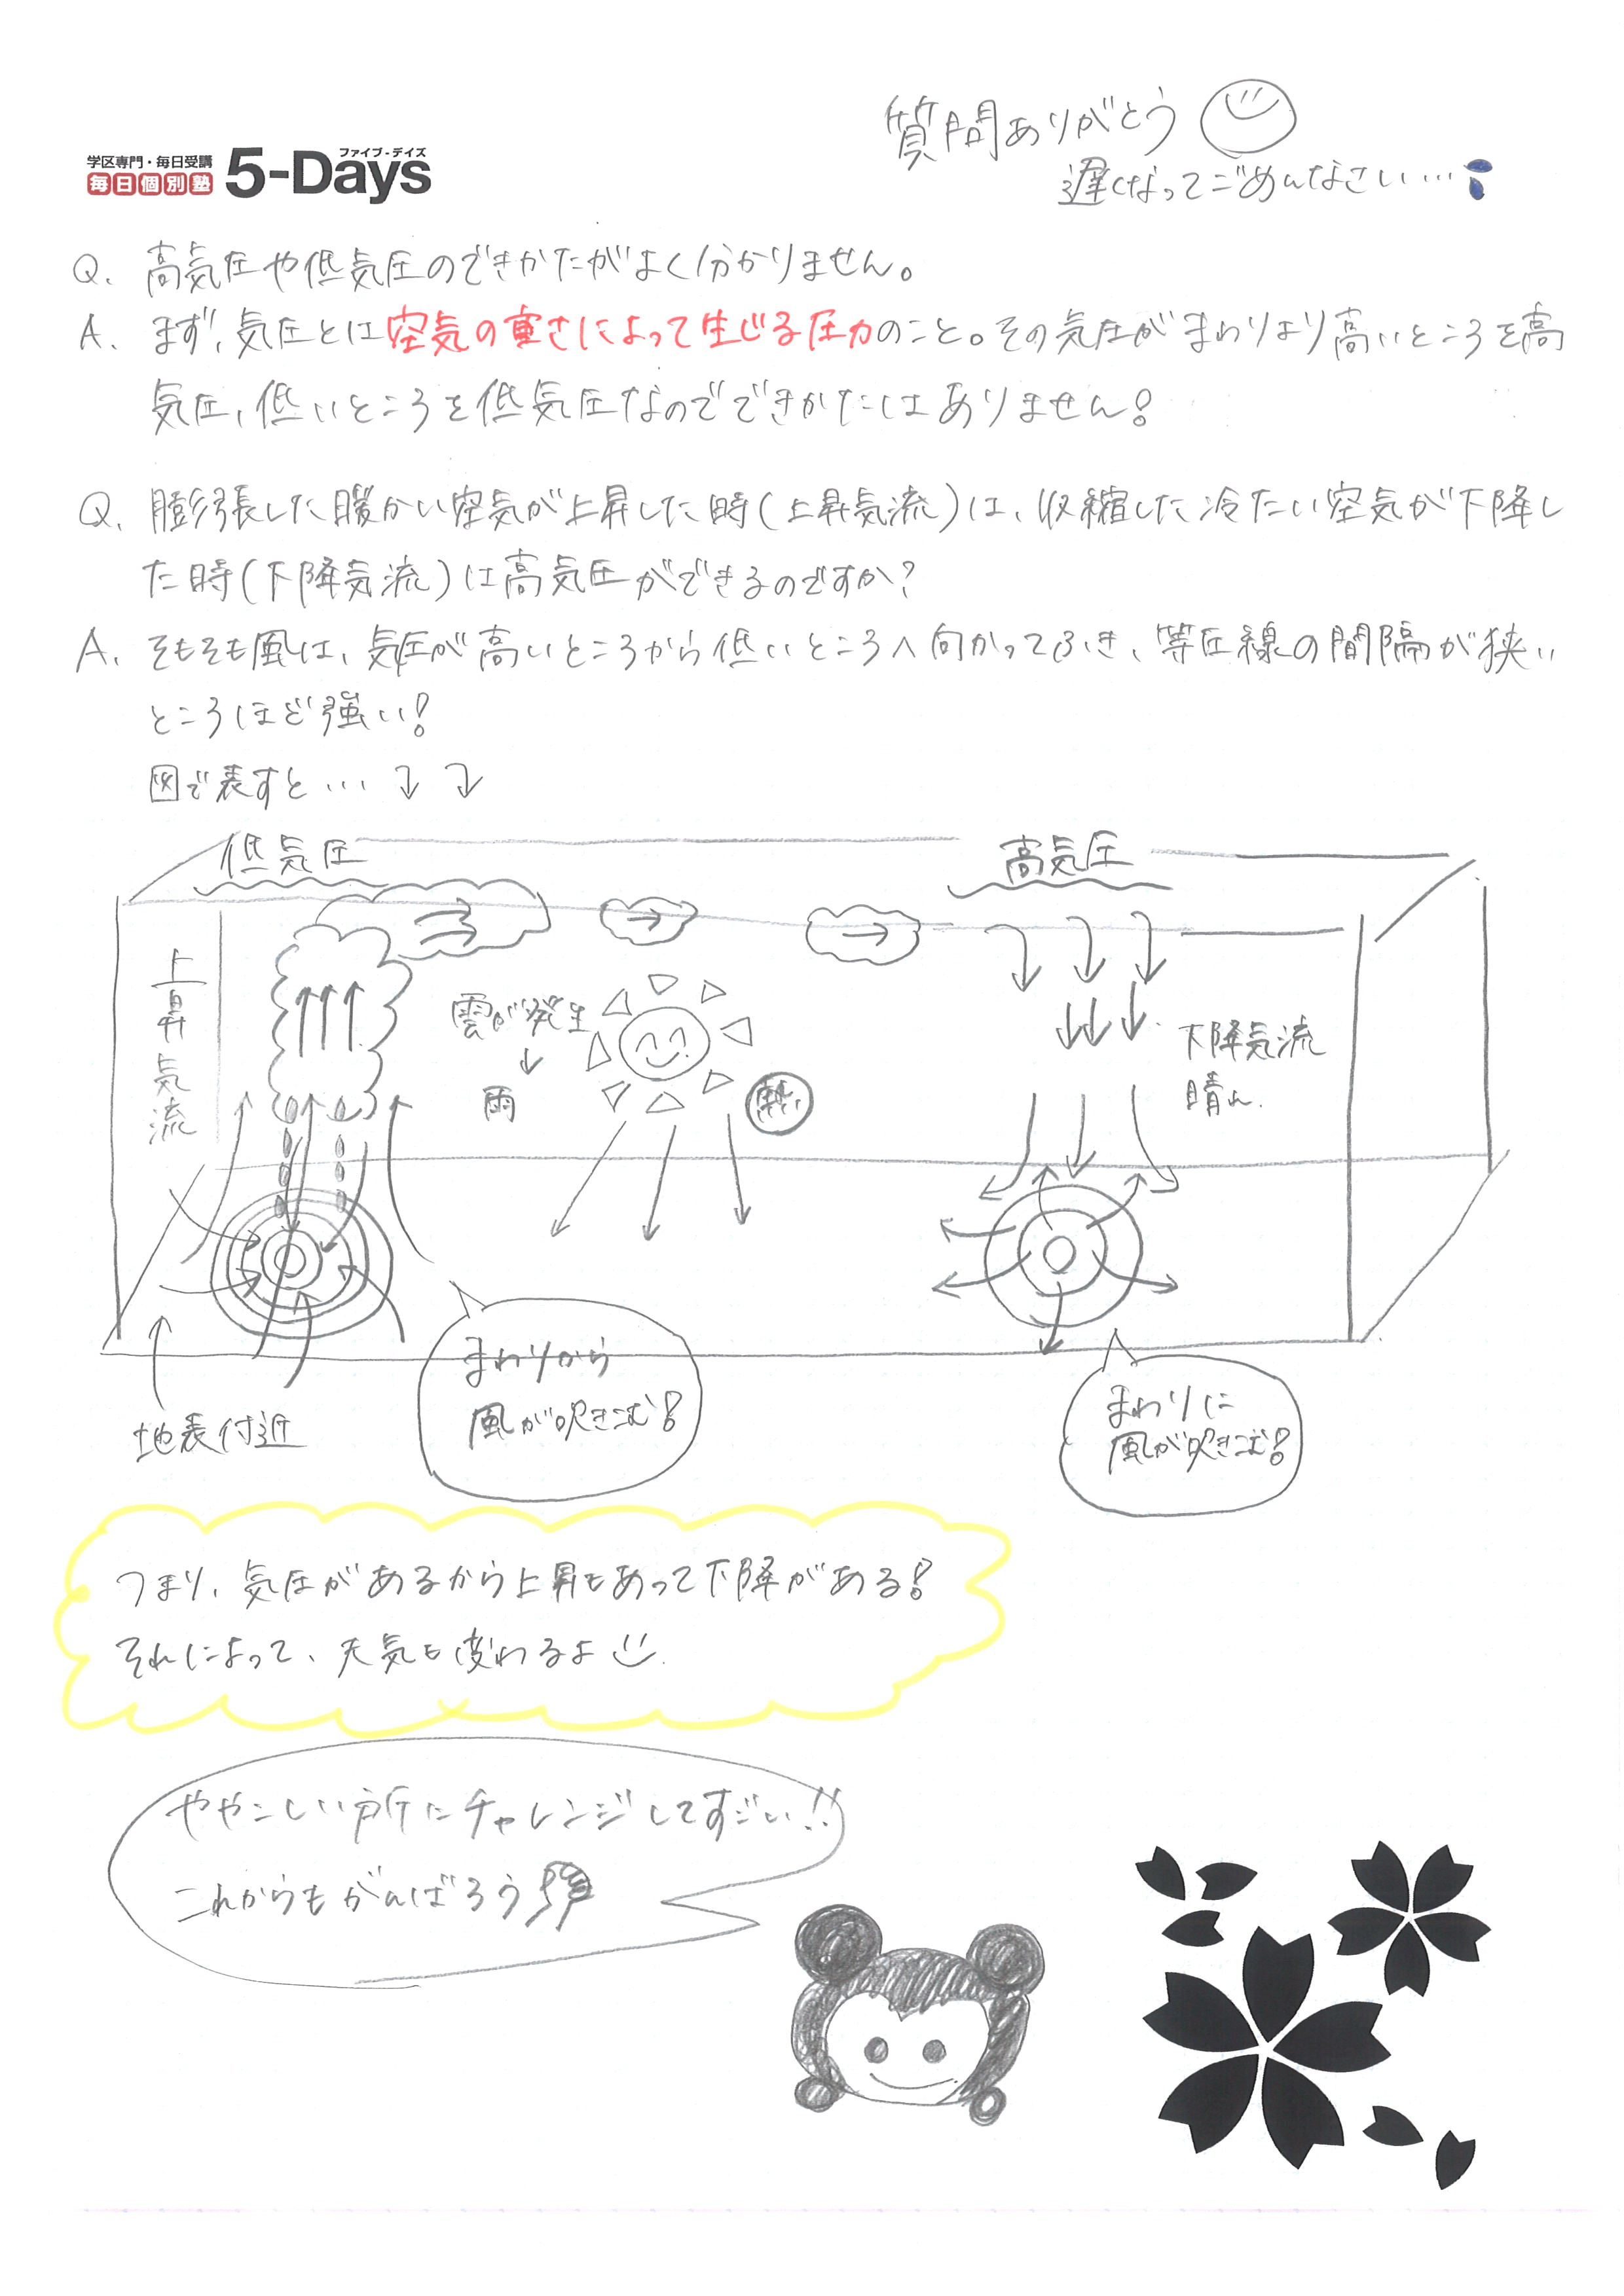 質問ありがとう
遅くなってごめんなさい…
学区専門・毎日受講
毎日個別塾
ファイブ・デイズ
5-Days
Q. 高気圧や低気圧のできかたがよく分かりません。
A. まず、気圧とは空気の重さによって生じる圧力のこと。その気圧がまわりより高いところを高
気圧、低いところを低気圧なのでできかたはありません!
Q. 膨張した暖かい空気が上昇した時(上昇気流)は、収縮した冷たい空気が下降し
た時(下降気流)は高気圧ができるのですか?
A. そもそも風は、気圧が高いところから低いところへ向かってふき、等圧線の間隔が狭い
ところほど強い!
図で表すと…
低気圧
高気圧
上昇気流
雲が発生
雨
熱
下降気流
晴れ.
まわりから
風が吹きこむ!
まわりに
風が吹きこむ!
地表付近
つまり、気圧があるから上昇もあって下降がある!
それによって、天気も変わるよ
ややこしい所にチャレンジしてすごい!!
これからもがんばろう